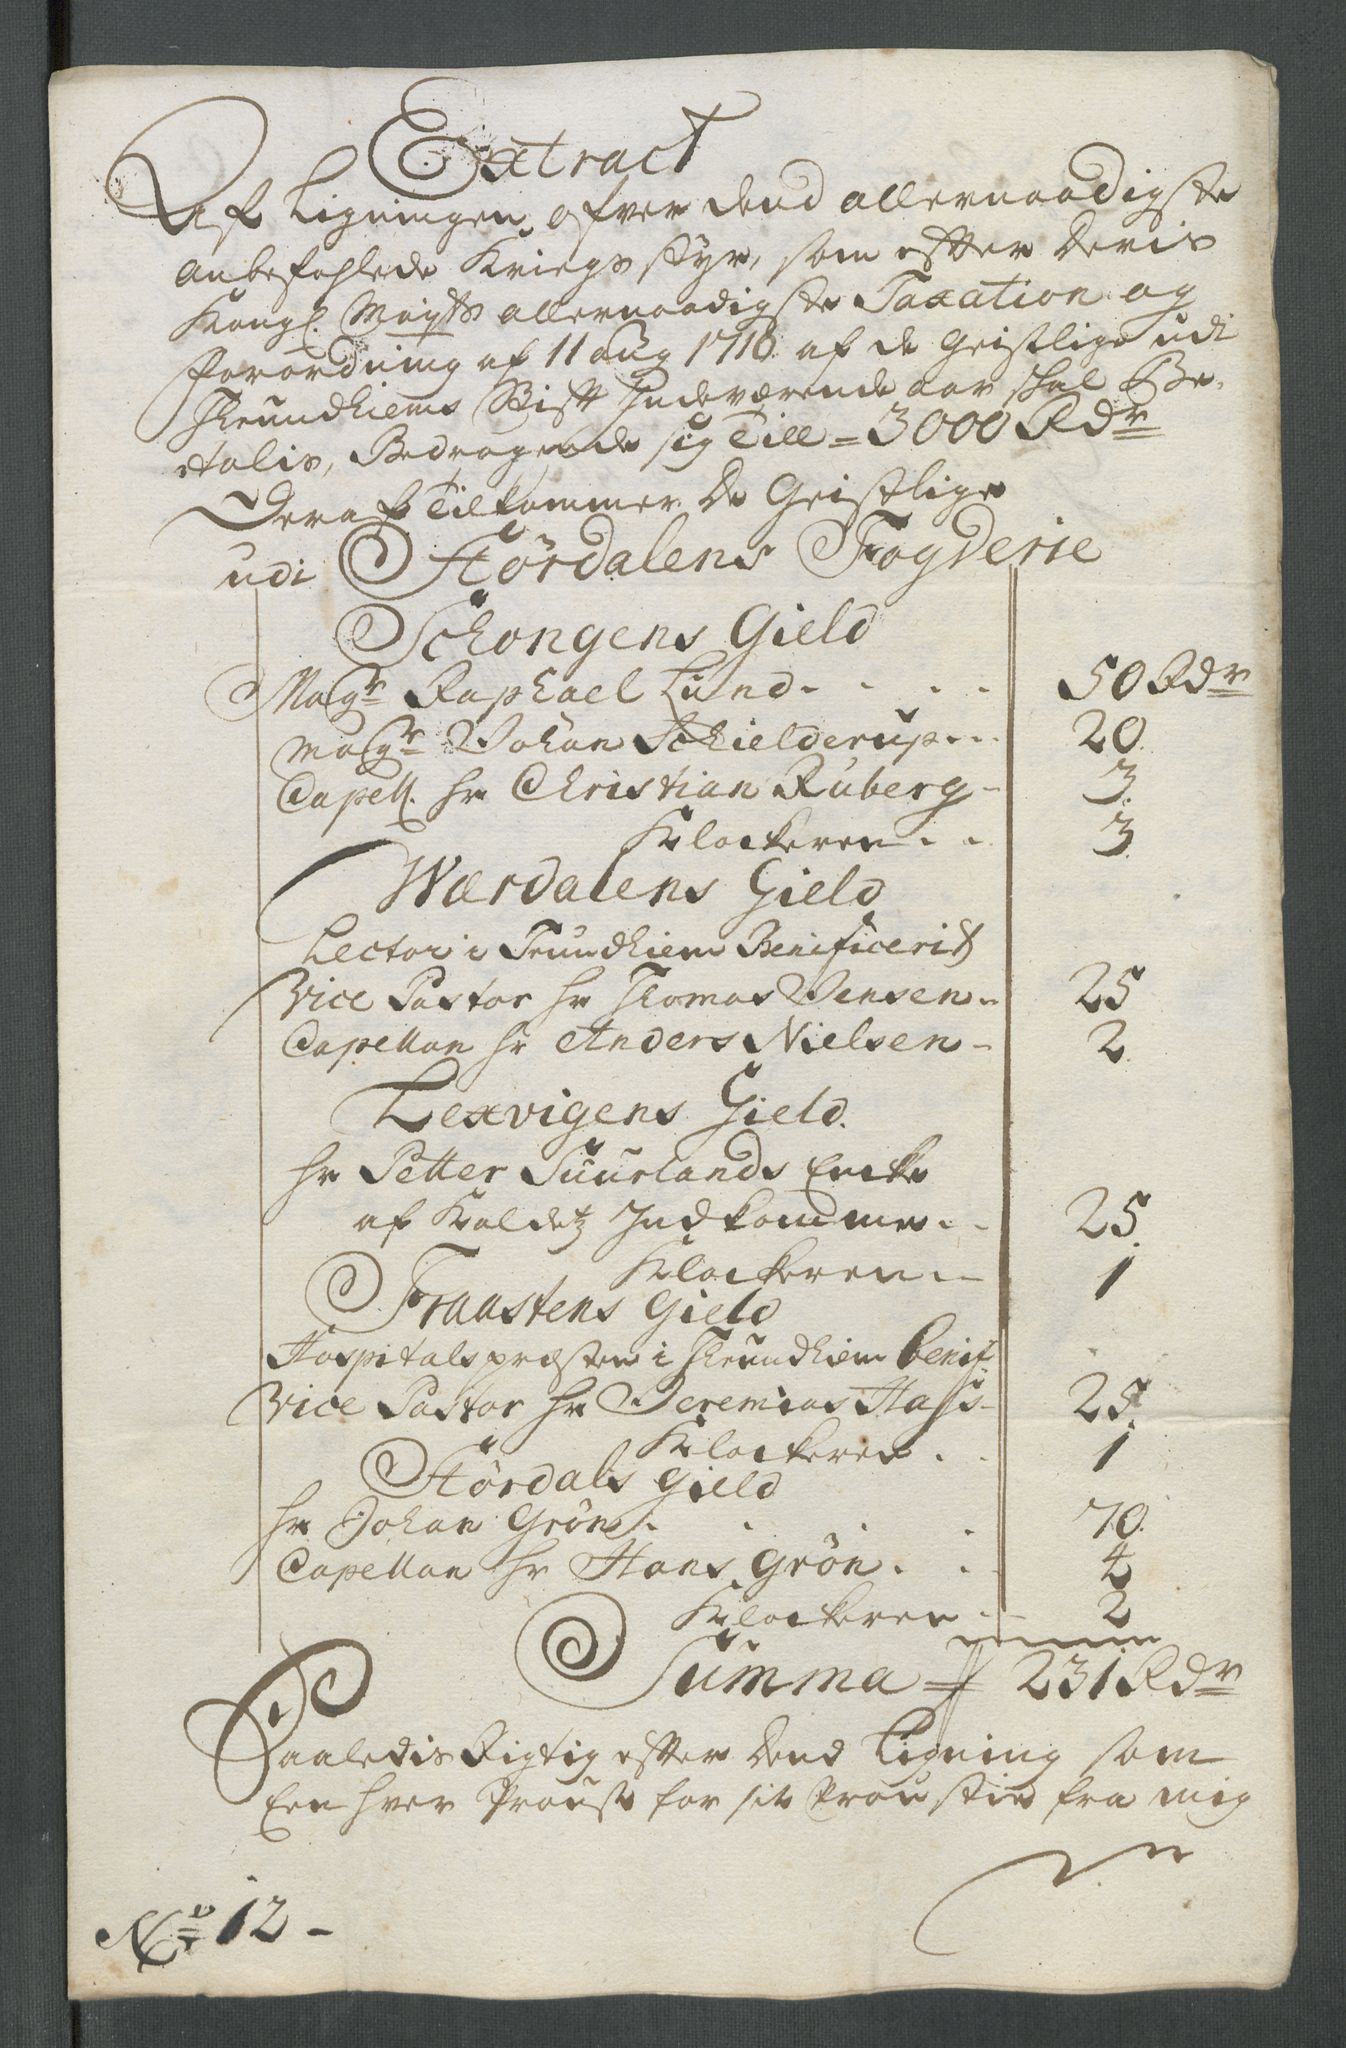 Extract
Af Ligningen ofver dend allernaadigste
anbefahlede Kriegs Styr, som efter Deris
Kongl. Mayts allernaadigste Taxation og
Forordning af 11 aug 1710 af de Geistlige udi
Trundhiems Stift Indeværende aar skal Be-
talis, Bedragende sig Till = 3000 Rdr
Deraf Tilkommer De Geistlige
udi Størdalens Fogderie
Schongens Gield
Magr Raphael Lund . . . . 50 Rdr
Magr Johan Schielderup... 20
Capell. hr Christian Ruberg - 3.
Klockeren . . 3.
Wærdalens Gield
Lector i Trundhiem Benificerit
Vice Pastor hr Thomas Jensen - 25
Capellan hr Anders Nielsen - 2.
Lexvigens Gield.
hr Petter Suurlands Encke
af Kaldetz Indkomme . - 25.
Klockeren . - 1
Fraastens Gield
Hospitalspræsten i Trundhiem benif:
Vice Pastor hr Jeremias Hass - 25.
Klockeren . . 1
Størdals Gield
hr Johan Grøn . . . . 70.
Capellan hr Hans Grøn . . 4
Klockeren . - 2
Summa = 231 Rdr
Saaledis Rigtig efter Dend Ligning som
Een hver Proust for sit Proustie fra mig
No 12 -